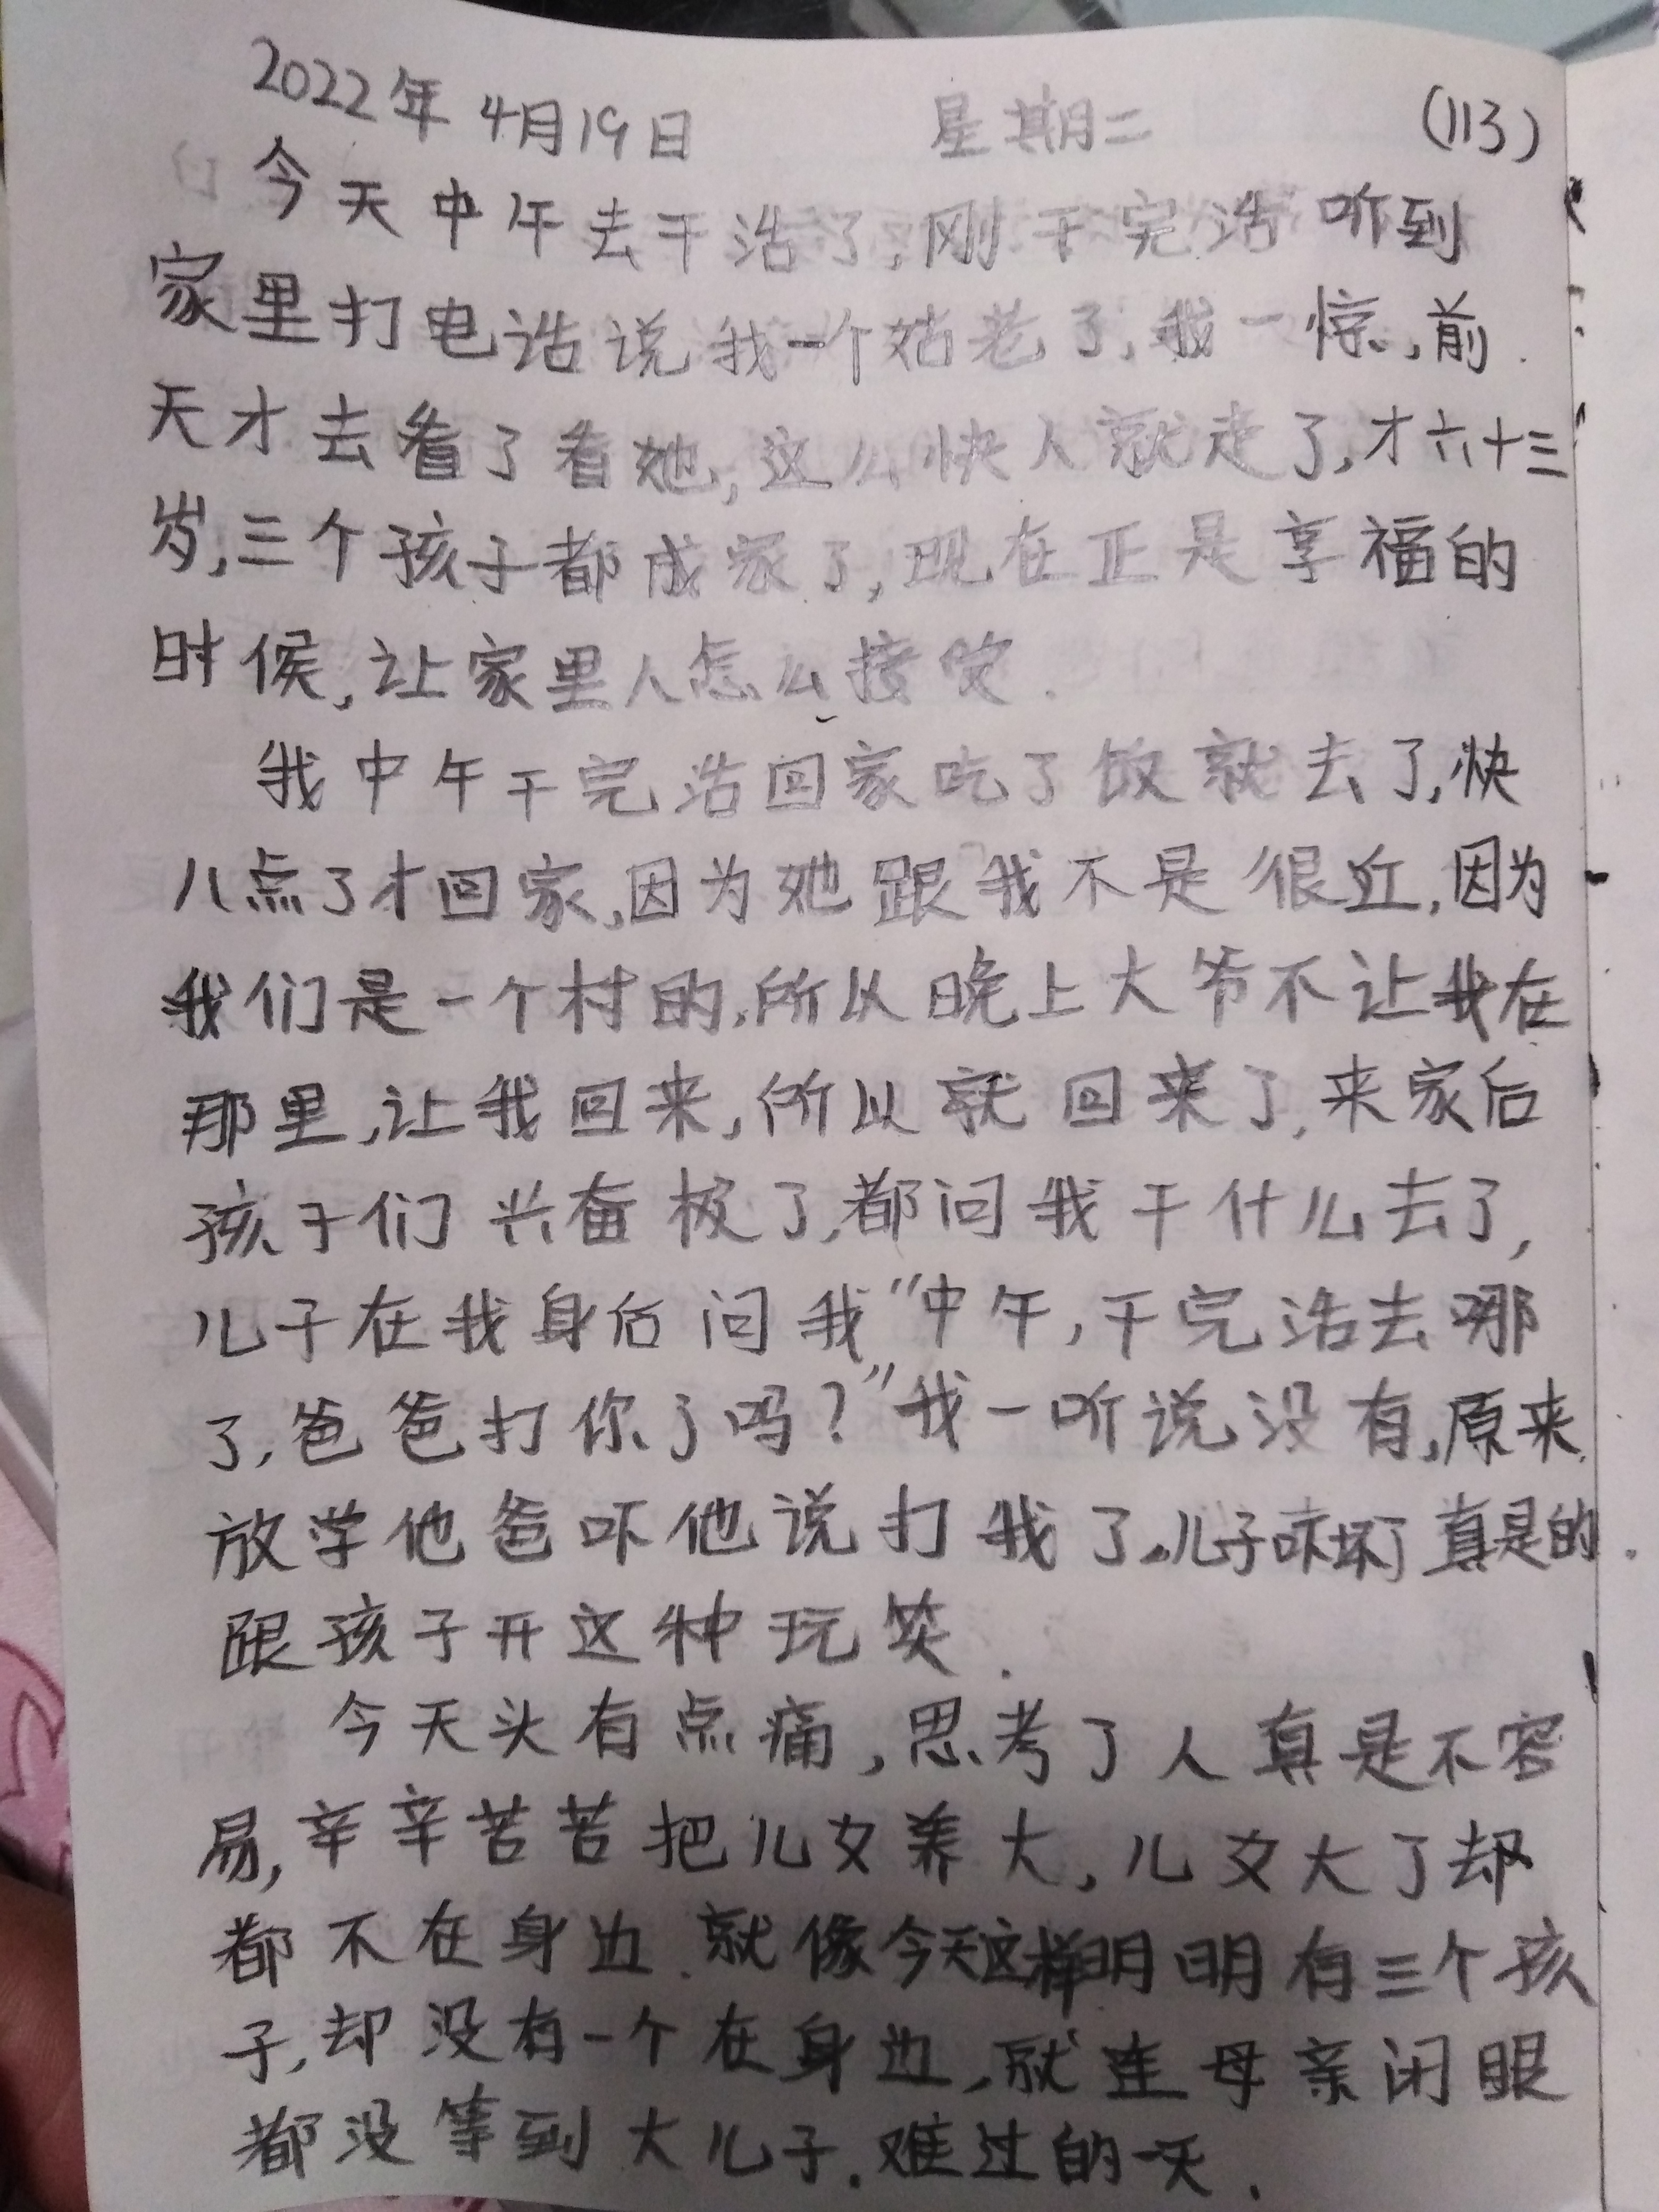 2022年4月19日 星期二 (113)
今天中午去干活了,刚干完活听到
家里打电话说我一个姑老了,我一惊,前
天才去看了看她,这么快人就走了,才六十三
岁,三个孩子都成家了,现在正是享福的
时候,让家里人怎么接受.
我中午干完活回家吃了饭就去了,快
八点了才回家,因为她跟我不是很近,因为
我们是一个村的,所以晚上大爷不让我在
那里,让我回来,所以就回来了,来家后
孩子们兴奋极了,都问我干什么去了,
儿子在我身后问我“中午,干完活去哪
了,爸爸打你了吗?”我一听说没有,原来
放学他爸吓他说打我了,儿子吓坏了真是的.
跟孩子开这种玩笑.
今天头有点痛,思考了人真是不容
易,辛辛苦苦把儿女养大,儿女大了却
都不在身边.就像今天这样明明有三个孩
子,却没有一个在身边,就连母亲闭眼
都没等到大儿子.难过的一天.